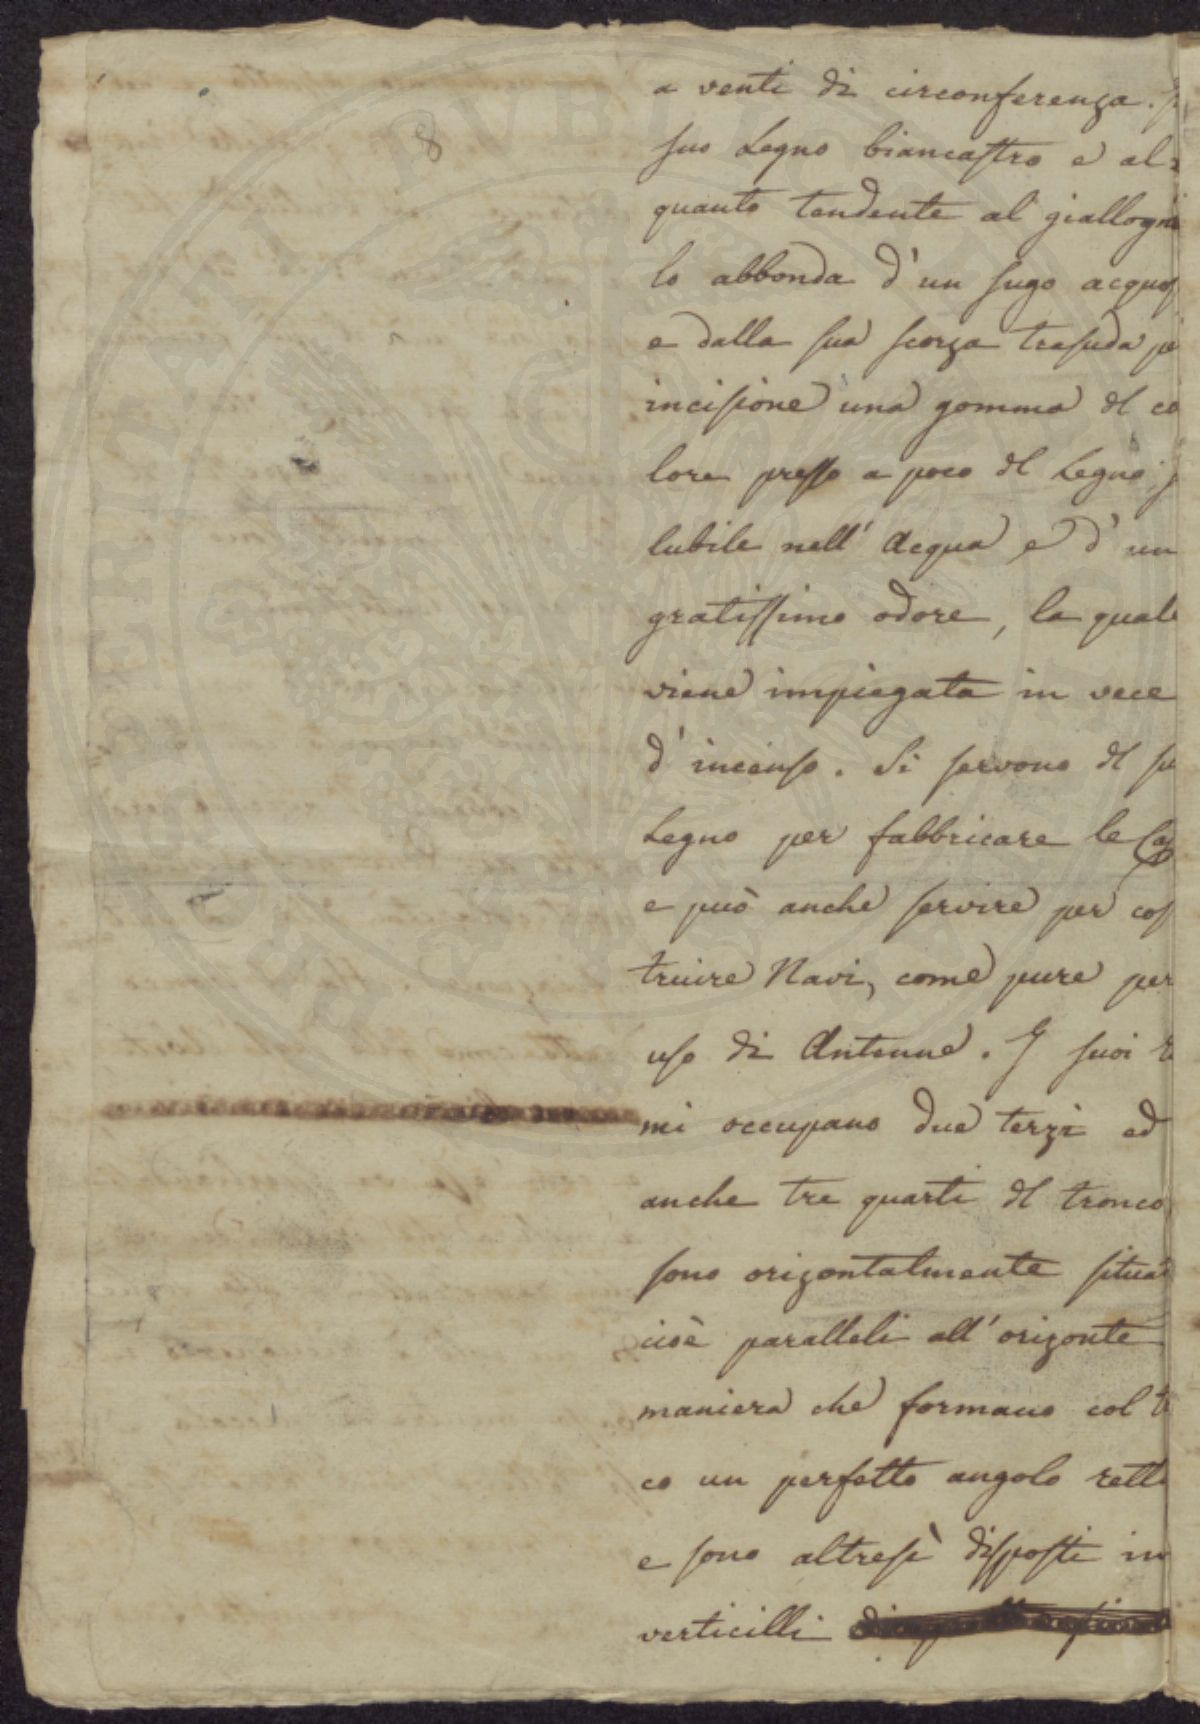 8
a venti di circonferenza.
suo Legno biancastro e al=
quanto tendente al giallogno
lo abbonda d'un sugo acquos
e dalla sua scorza trasuda pe
incisione una gomma dl co
lore presso a poco dl Legno
lubile nell' Acqua e d' un
gratissimo odore, la quale
viene impiegata in vece
d' incenso. Si servono dl su
Legno per fabbricare le Cas
e può anche servire per cos
truire Navi, come pure per
uso di Antenne. I suoi r
mi occupano due terzi ed
anche tre quarti dl tronco
sono orizontalmente situat
cioè paralleli all' orizonte
maniera che formano col t
co un perfetto angolo rett
e sono altresì disposti in
verticilli